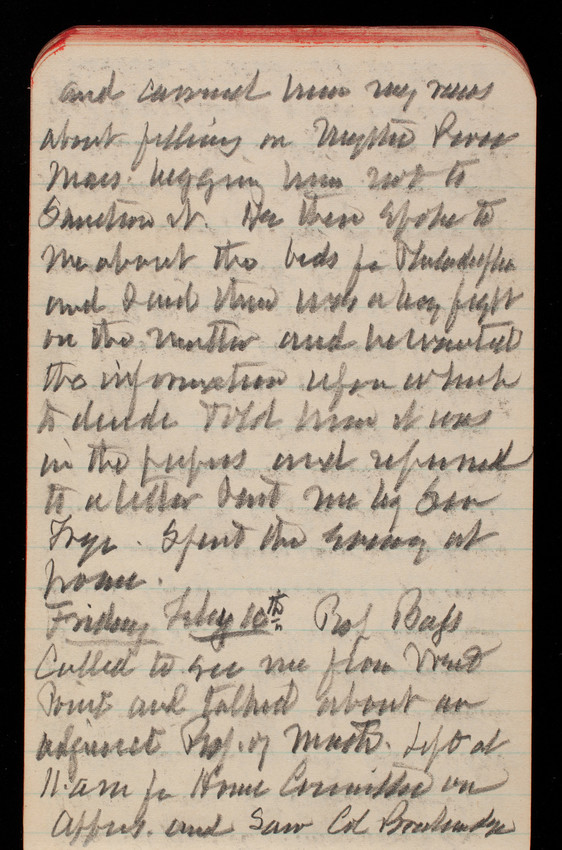 and                      him my views
about filling on Mystic River
Mass. begging him not to
Sanction it. He then spoke to
me about the bids for Philadelphia
and said there was a big fight
on the matter and he wanted
the information upon which
to decide Told him it was
in the papers and referred
to a letter sent me by Sen
Frye. Spent the Evening at
home.
Friday Feby 10th Prof Bass
Called to see me from West
Point and talked about an
adjunct Prof. of Math. Left at
11. am for House Committee on
Appns. and Saw Col Breckinridge